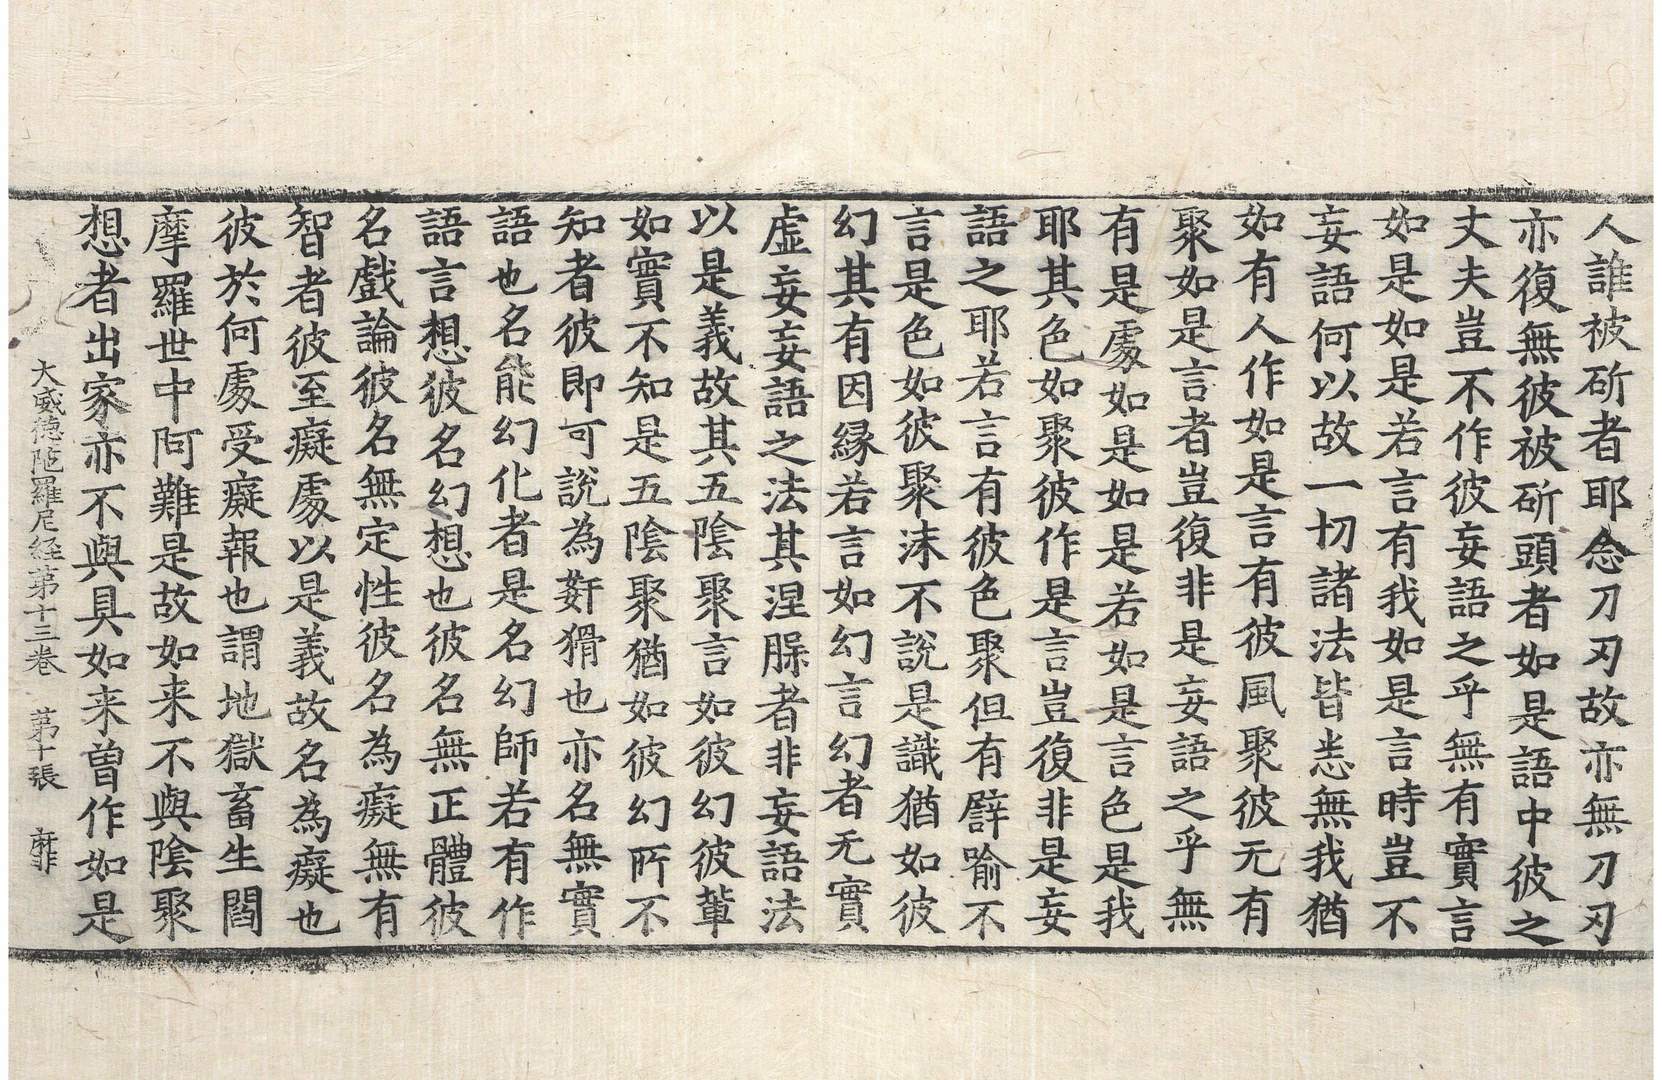 人誰被斫者耶念刀刃故亦無刀刃
亦復無彼被斫頭者如是語中彼之
丈夫豈不作彼妄語之乎無有實言
如是如是若言有我如是言時豈不
妄語何以故一切諸法皆悉無我猶
如有人作如是言有彼風聚彼无有
聚如是言者豈復非是妄語之乎無
有是處如是如是若如是言色是我
耶其色如聚彼作是言豈復非是妄
語之耶若言有彼色聚但有譬喻不
言是色如彼聚沫不說是識猶如彼
幻其有因縁若言如幻言幻者无實
虛妄妄語之法其涅槃者非妄語法
以是義故其五陰聚言如彼幻彼輩
如實不知是五陰聚猶如彼幻所不
知者彼即可說為姧猾也亦名無實
語也名能幻化者是名幻師若有作
語言想彼名幻想也彼名無正體彼
名戲論彼名無定性彼名為癡無有
智者彼至癡處以是義故名為癡也
彼於何處受癡報也謂地獄畜生閻
摩羅世中阿難是故如来不與陰聚
想者出家亦不與具如来曽作如是
大威德陁羅尼経第十三卷 第十張 靡